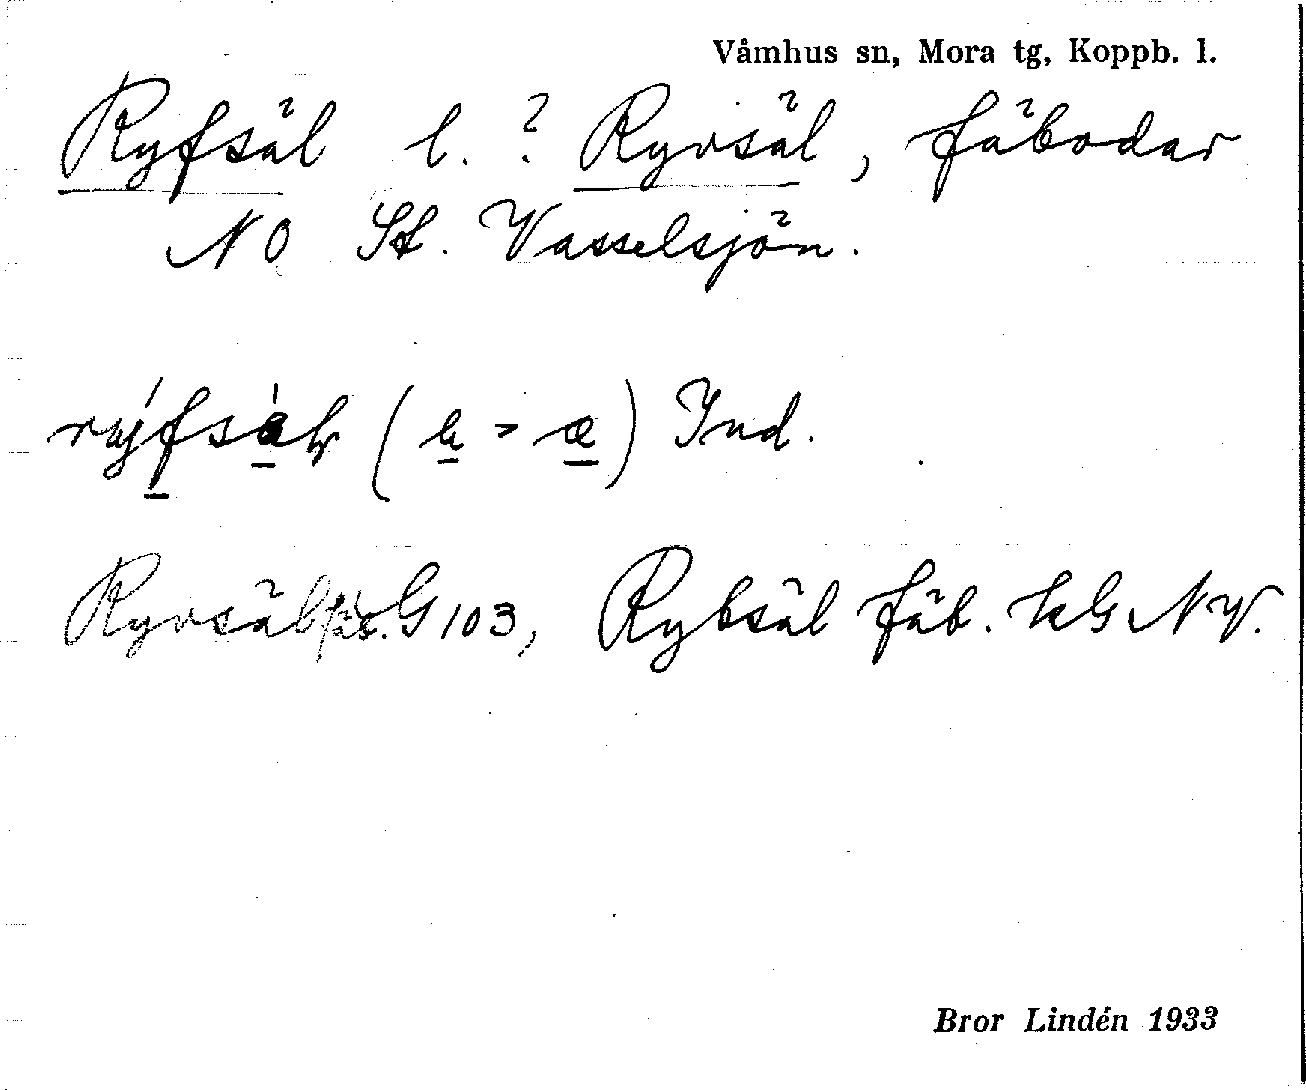 Våmhus sn, Mora tg, Koppb. l.
Ryfsäl l. ? Ryvsäl, fäbodar
NO St. Vasselsjön.
( > æ) Ind.
Ryvsäl fäb. G 103, Rybsäl fäb. kG NV.
Bror Lindén 1933